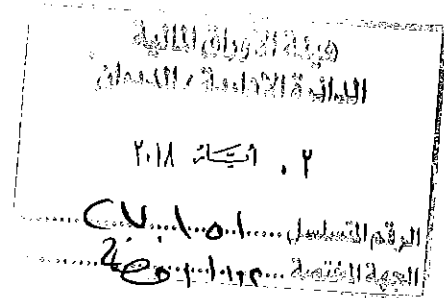 هيئة الأوراق المالية
الدائرة الإدارية / الديوان
٢٠ أيار ٢٠١٨
الرقم التسلسل
الجهة المختصة